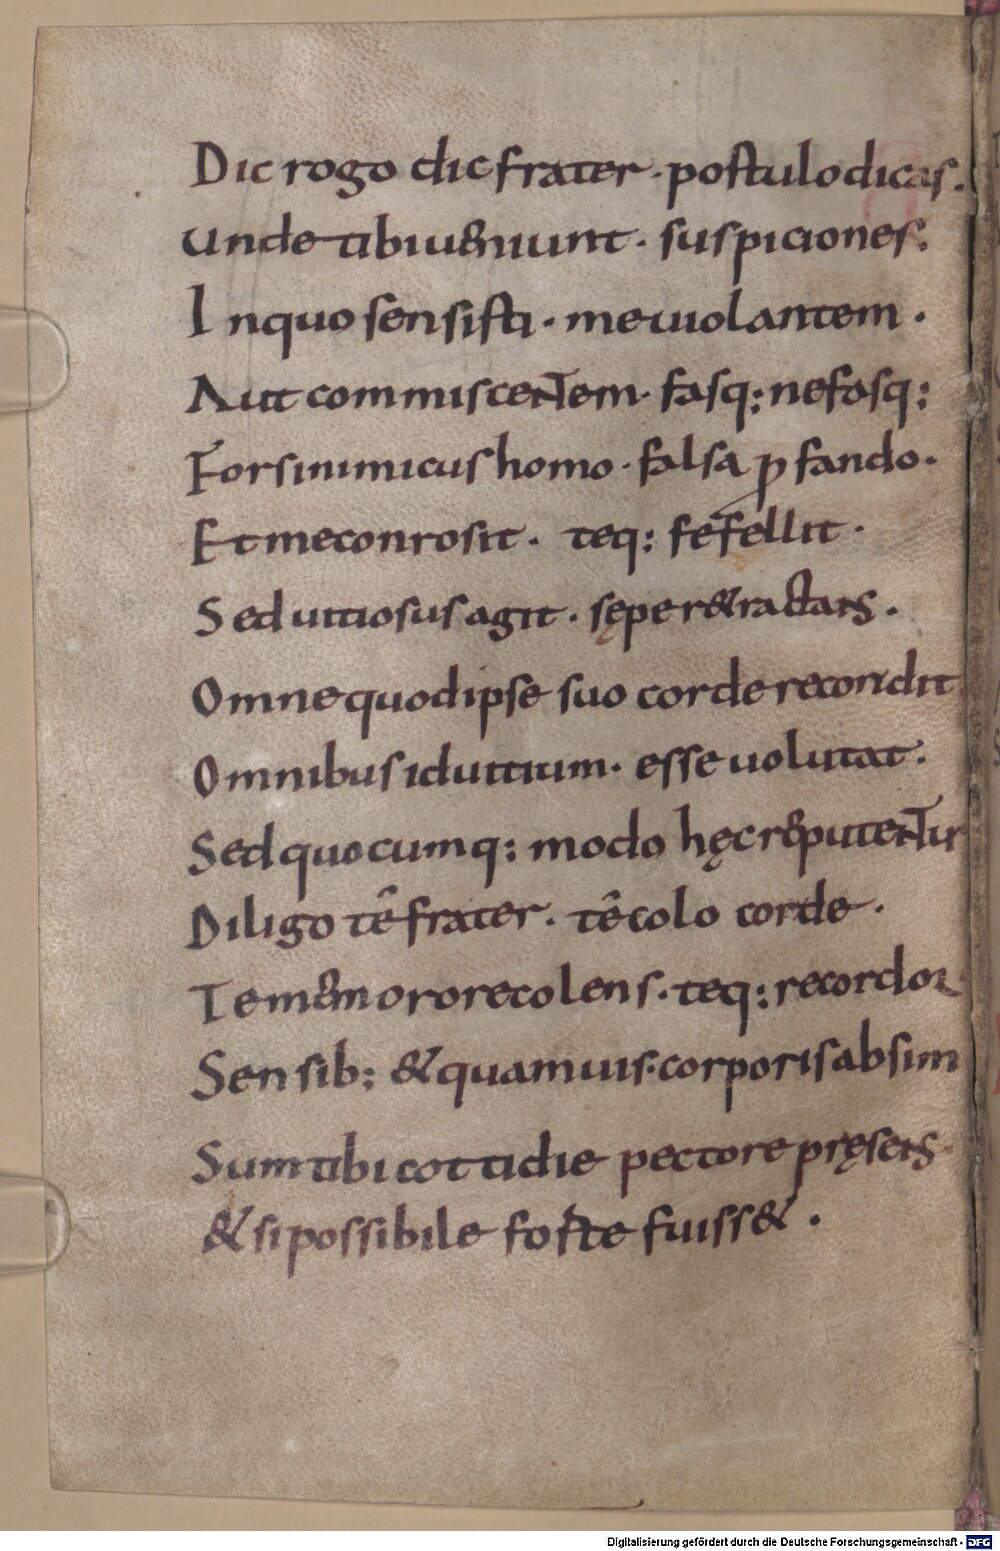 Dic rogo dic frater · postulo dicas .
unde tibi ueniunt · suspiciones .
In quo sensisti · me uiolantem .
Aut commiscentem · fasq: nefasq:
Fors inimicus homo · falsa ꝓfando .
Et me conrosit · teq: fefellit .
Sed uitiosus agit · sępe r&ractans .
Omne quod ipse suo corde recondit
Omnibus id uitium · esse uolutat .
Sed quocumq: modo hęc reputentur
Diligo tê frater · tê colo corde .
Te memoro recolens · teq: recordor
Sensib: & quamuis · corporis absim
Sum tibi cottidie pectore pręsens
& si possibile foste fuiss& .
Digitalisierung gefördert durch die Deutsche Forschungsgemeinschaft - DFG